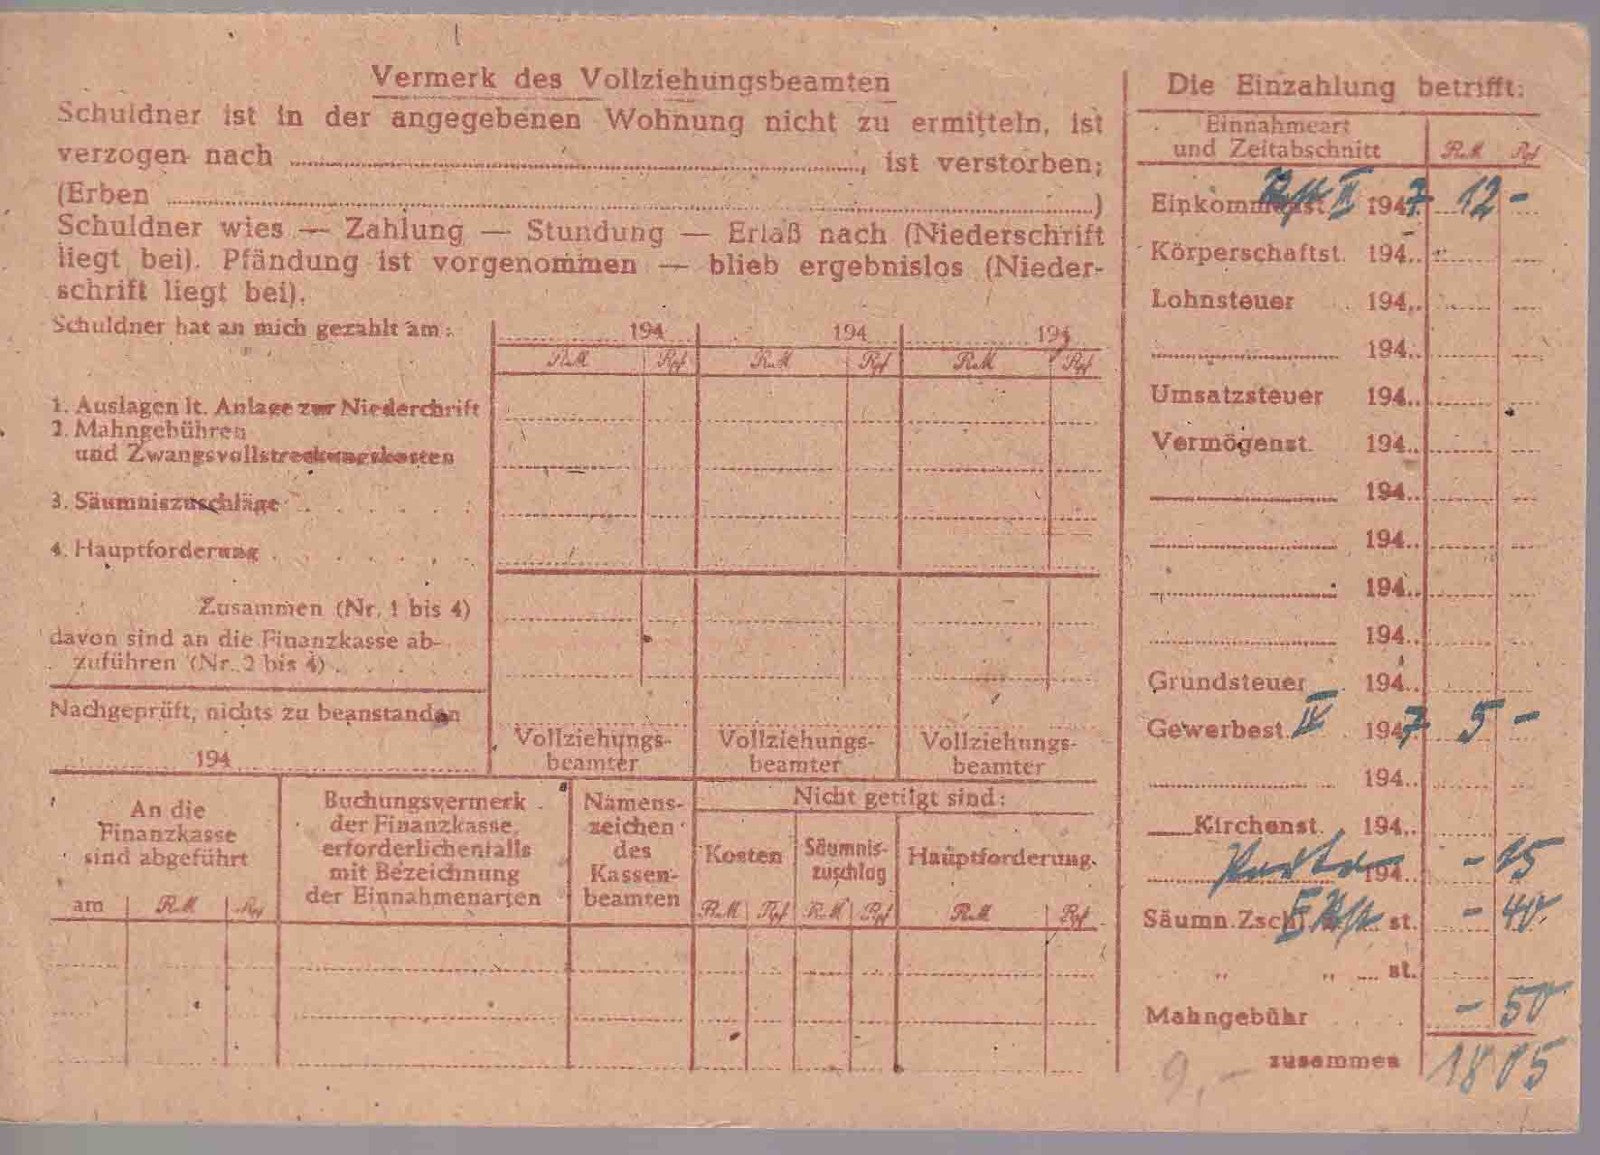 Vermerk des Vollziehungsbeamten
Schuldner ist in der angegebenen Wohnung nicht zu ermitteln, ist
verzogen nach ......, ist verstorben;
(Erben ......)
Schuldner wies — Zahlung — Stundung — Erlaß nach (Niederschrift
liegt bei). Pfändung ist vorgenommen — blieb ergebnislos (Nieder-
schrift liegt bei).
Schuldner hat an mich gezahlt am:
194 194 194
RM Rpf RM Rpf RM Rpf
1. Auslagen lt. Anlage zur Niederchrift
2. Mahngebühren
und Zwangsvollstreckungskosten
3. Säumniszuschläge
4. Hauptforderung
Zusammen (Nr. 1 bis 4)
davon sind an die Finanzkasse ab-
zuführen (Nr. 2 bis 4)
Nachgeprüft, nichts zu beanstanden
194
Vollziehungs-
beamter
Vollziehungs-
beamter
Vollziehungs-
beamter
An die
Finanzkasse
sind abgeführt
am RM Rpf
Buchungsvermerk
der Finanzkasse,
erforderlichenfalls
mit Bezeichnung
der Einnahmenarten
Namens-
zeichen
des
Kassen-
beamten
Nicht getilgt sind:
Kosten
RM Rpf
Säumnis-
zuschlag
RM Rpf
Hauptforderung.
RM Rpf
Die Einzahlung betrifft:
Einnahmeart
und Zeitabschnitt RM Rpf
Einkommenst. 1947 12 -
Körperschaftst. 194..
Lohnsteuer 194..
194..
Umsatzsteuer 194..
Vermögenst. 194..
194..
194..
194..
194..
Grundsteuer 194..
Gewerbest. IV 1947 5 -
194..
Kirchenst. 194..
Porto 194.. - 15
Säumn.Zschl. st. - 40
„ „ st.
Mahngebühr - 50
zusammen 18 05
9,-